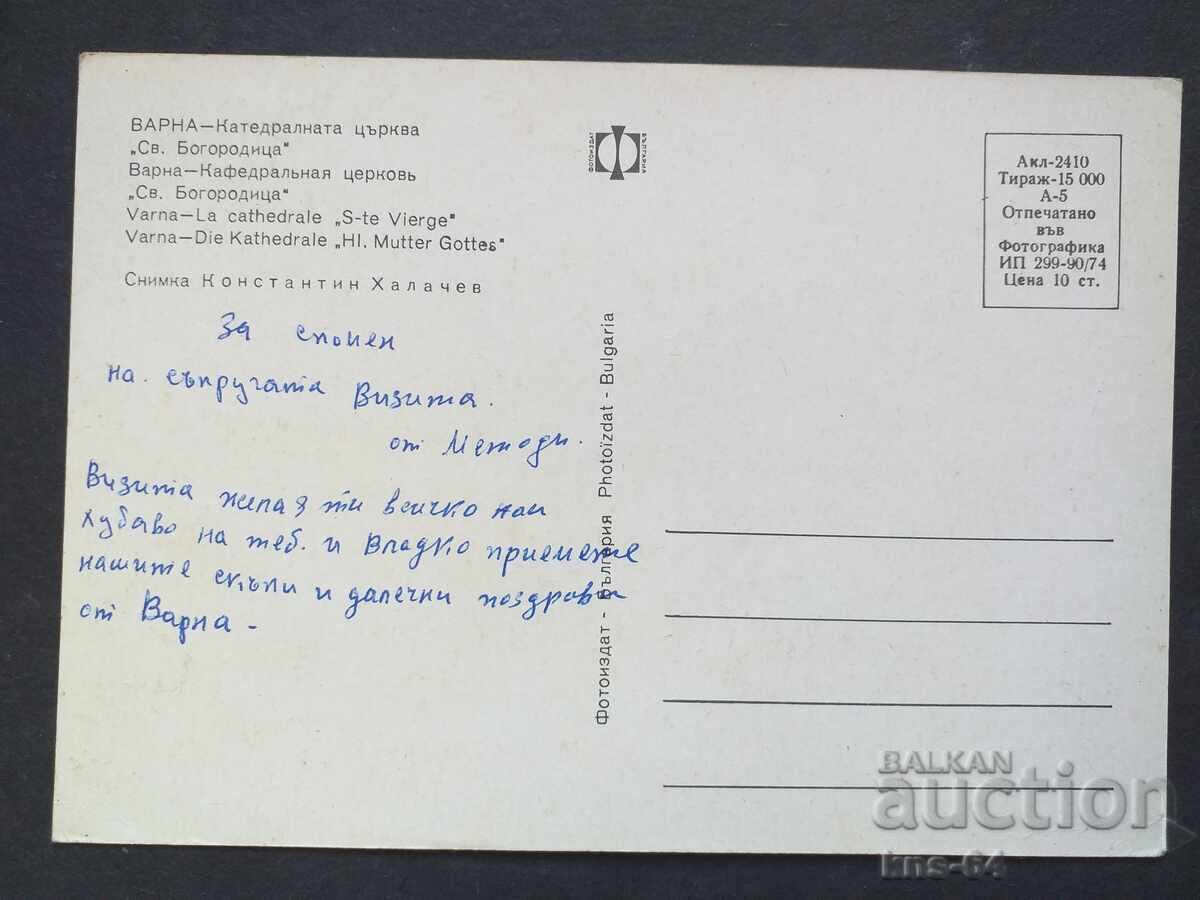 ВАРНА—Катедралната църква
„Св. Богородица“
Варна—Кафедральная церковь
„Св. Богородица“
Varna—La cathedrale „S-te Vierge“
Varna—Die Kathedrale „Hl. Mutter Gottes“
Снимка Константин Халачев
За спомен
на. съпругата Визита.
от Методи.
Визита желая ти всичко най
хубаво на теб. и Владко приемете
нашите скъпи и далечни поздрави
от Варна -
ФОТОИЗДАТ
БЪЛГАРИЯ
Фотоиздат - България Photoïzdat - Bulgaria
Акл-2410
Тираж-15 000
А-5
Отпечатано
във
Фотографика
ИП 299-90/74
Цена 10 ст.
BALKAN
auction
kns-64